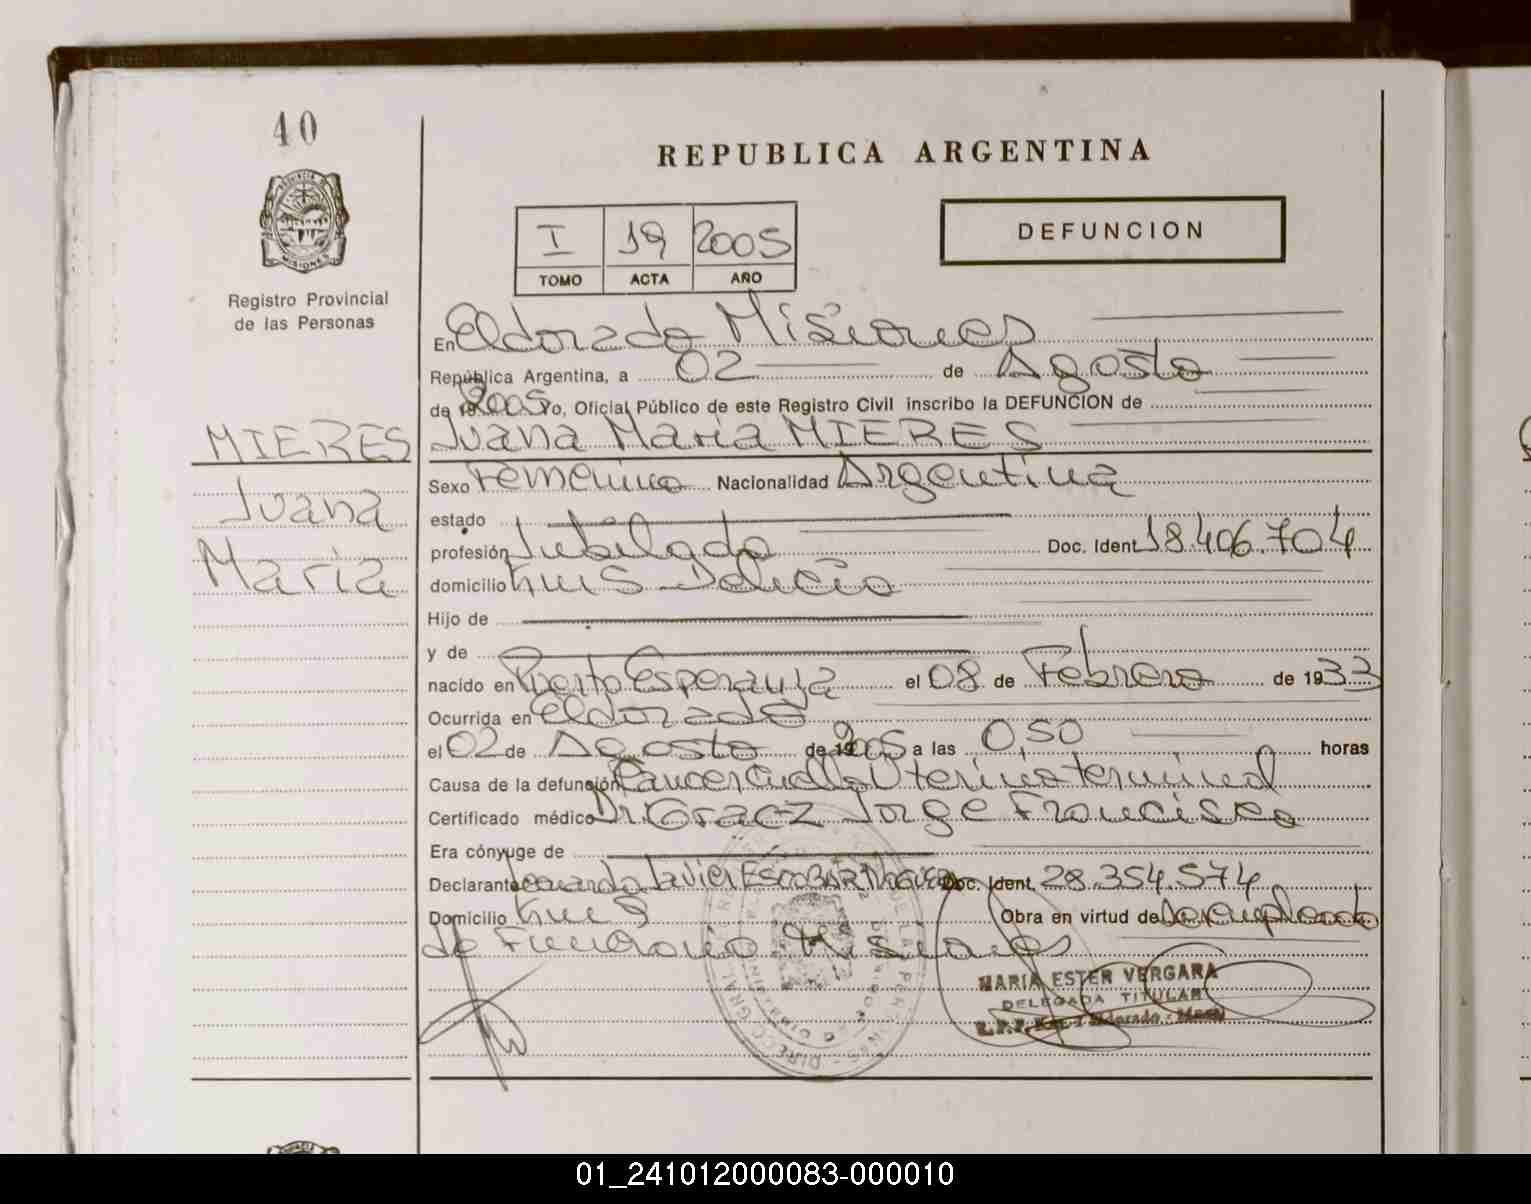 40
REPUBLICA ARGENTINA
I 19 2005
TOMO ACTA AÑO
DEFUNCION
PROVINCIA DE
MISIONES
Registro Provincial
de las Personas
En Eldorado Misiones
República Argentina, a 02 de Agosto
de 19 2005 Yo, Oficial Público de este Registro Civil inscribo la DEFUNCION de
MIERES Juana Maria MIERES
Juana
Maria
Sexo Femenino Nacionalidad Argentina
estado
profesión Jubilada Doc. Ident. 18.406.704
domicilio Km 5 Delicio
Hijo de
y de
nacido en Puerto Esperanza el 08 de Febrero de 1933
Ocurrida en Eldorado
el 02 de Agosto de 19 2005 a las 0,50 horas
Causa de la defunción Cancer Cuello Uterino terminal
Certificado médico Dr. Jorge Francisco
Era cónyuge de
Declarante Leonardo Javier ESCOBAR Doc. Ident. 28.354.574
Domicilio Km 9 Obra en virtud de Ser empleado
de Funeraria Misiones
MARIA ESTER VERGARA
DELEGADA TITULAR
01_241012000083-000010